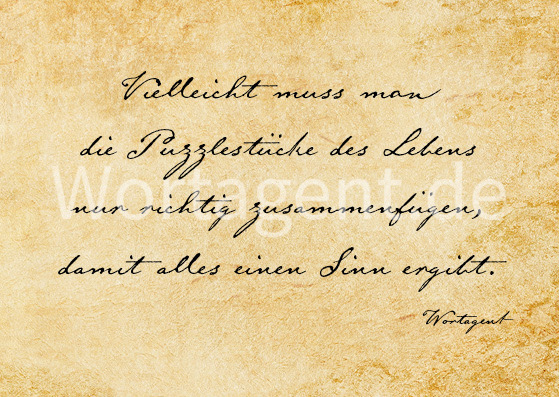 Vielleicht muss man
die Puzzlestücke des Lebens
Wortagent.de
nur richtig zusammenfügen,
damit alles einen Sinn ergibt.
Wortagent